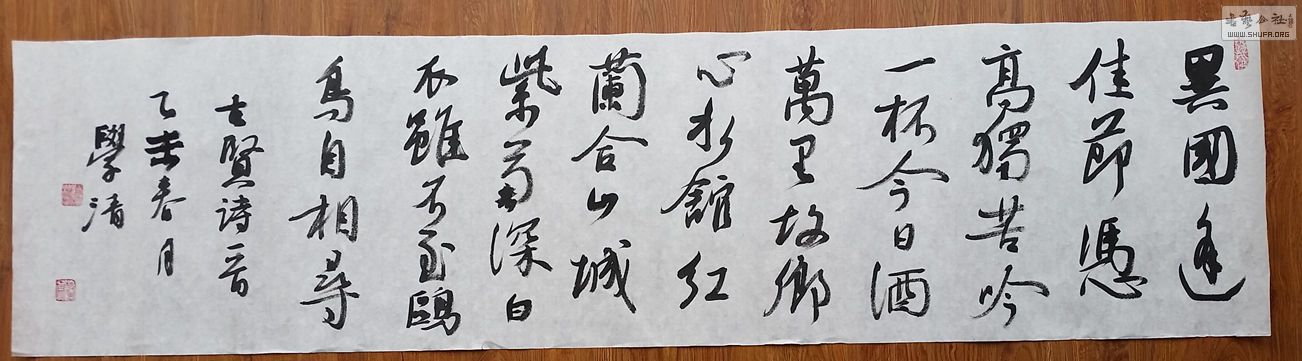 異國逢
佳節憑
高獨苦吟
一杯今日酒
萬里故鄉
心水館紅
蘭合山城
紫菊深白
衣雖不至鷗
鳥自相尋
古賢詩一首
乙未春月
學清
書藝公社
WWW.SHUFA.ORG